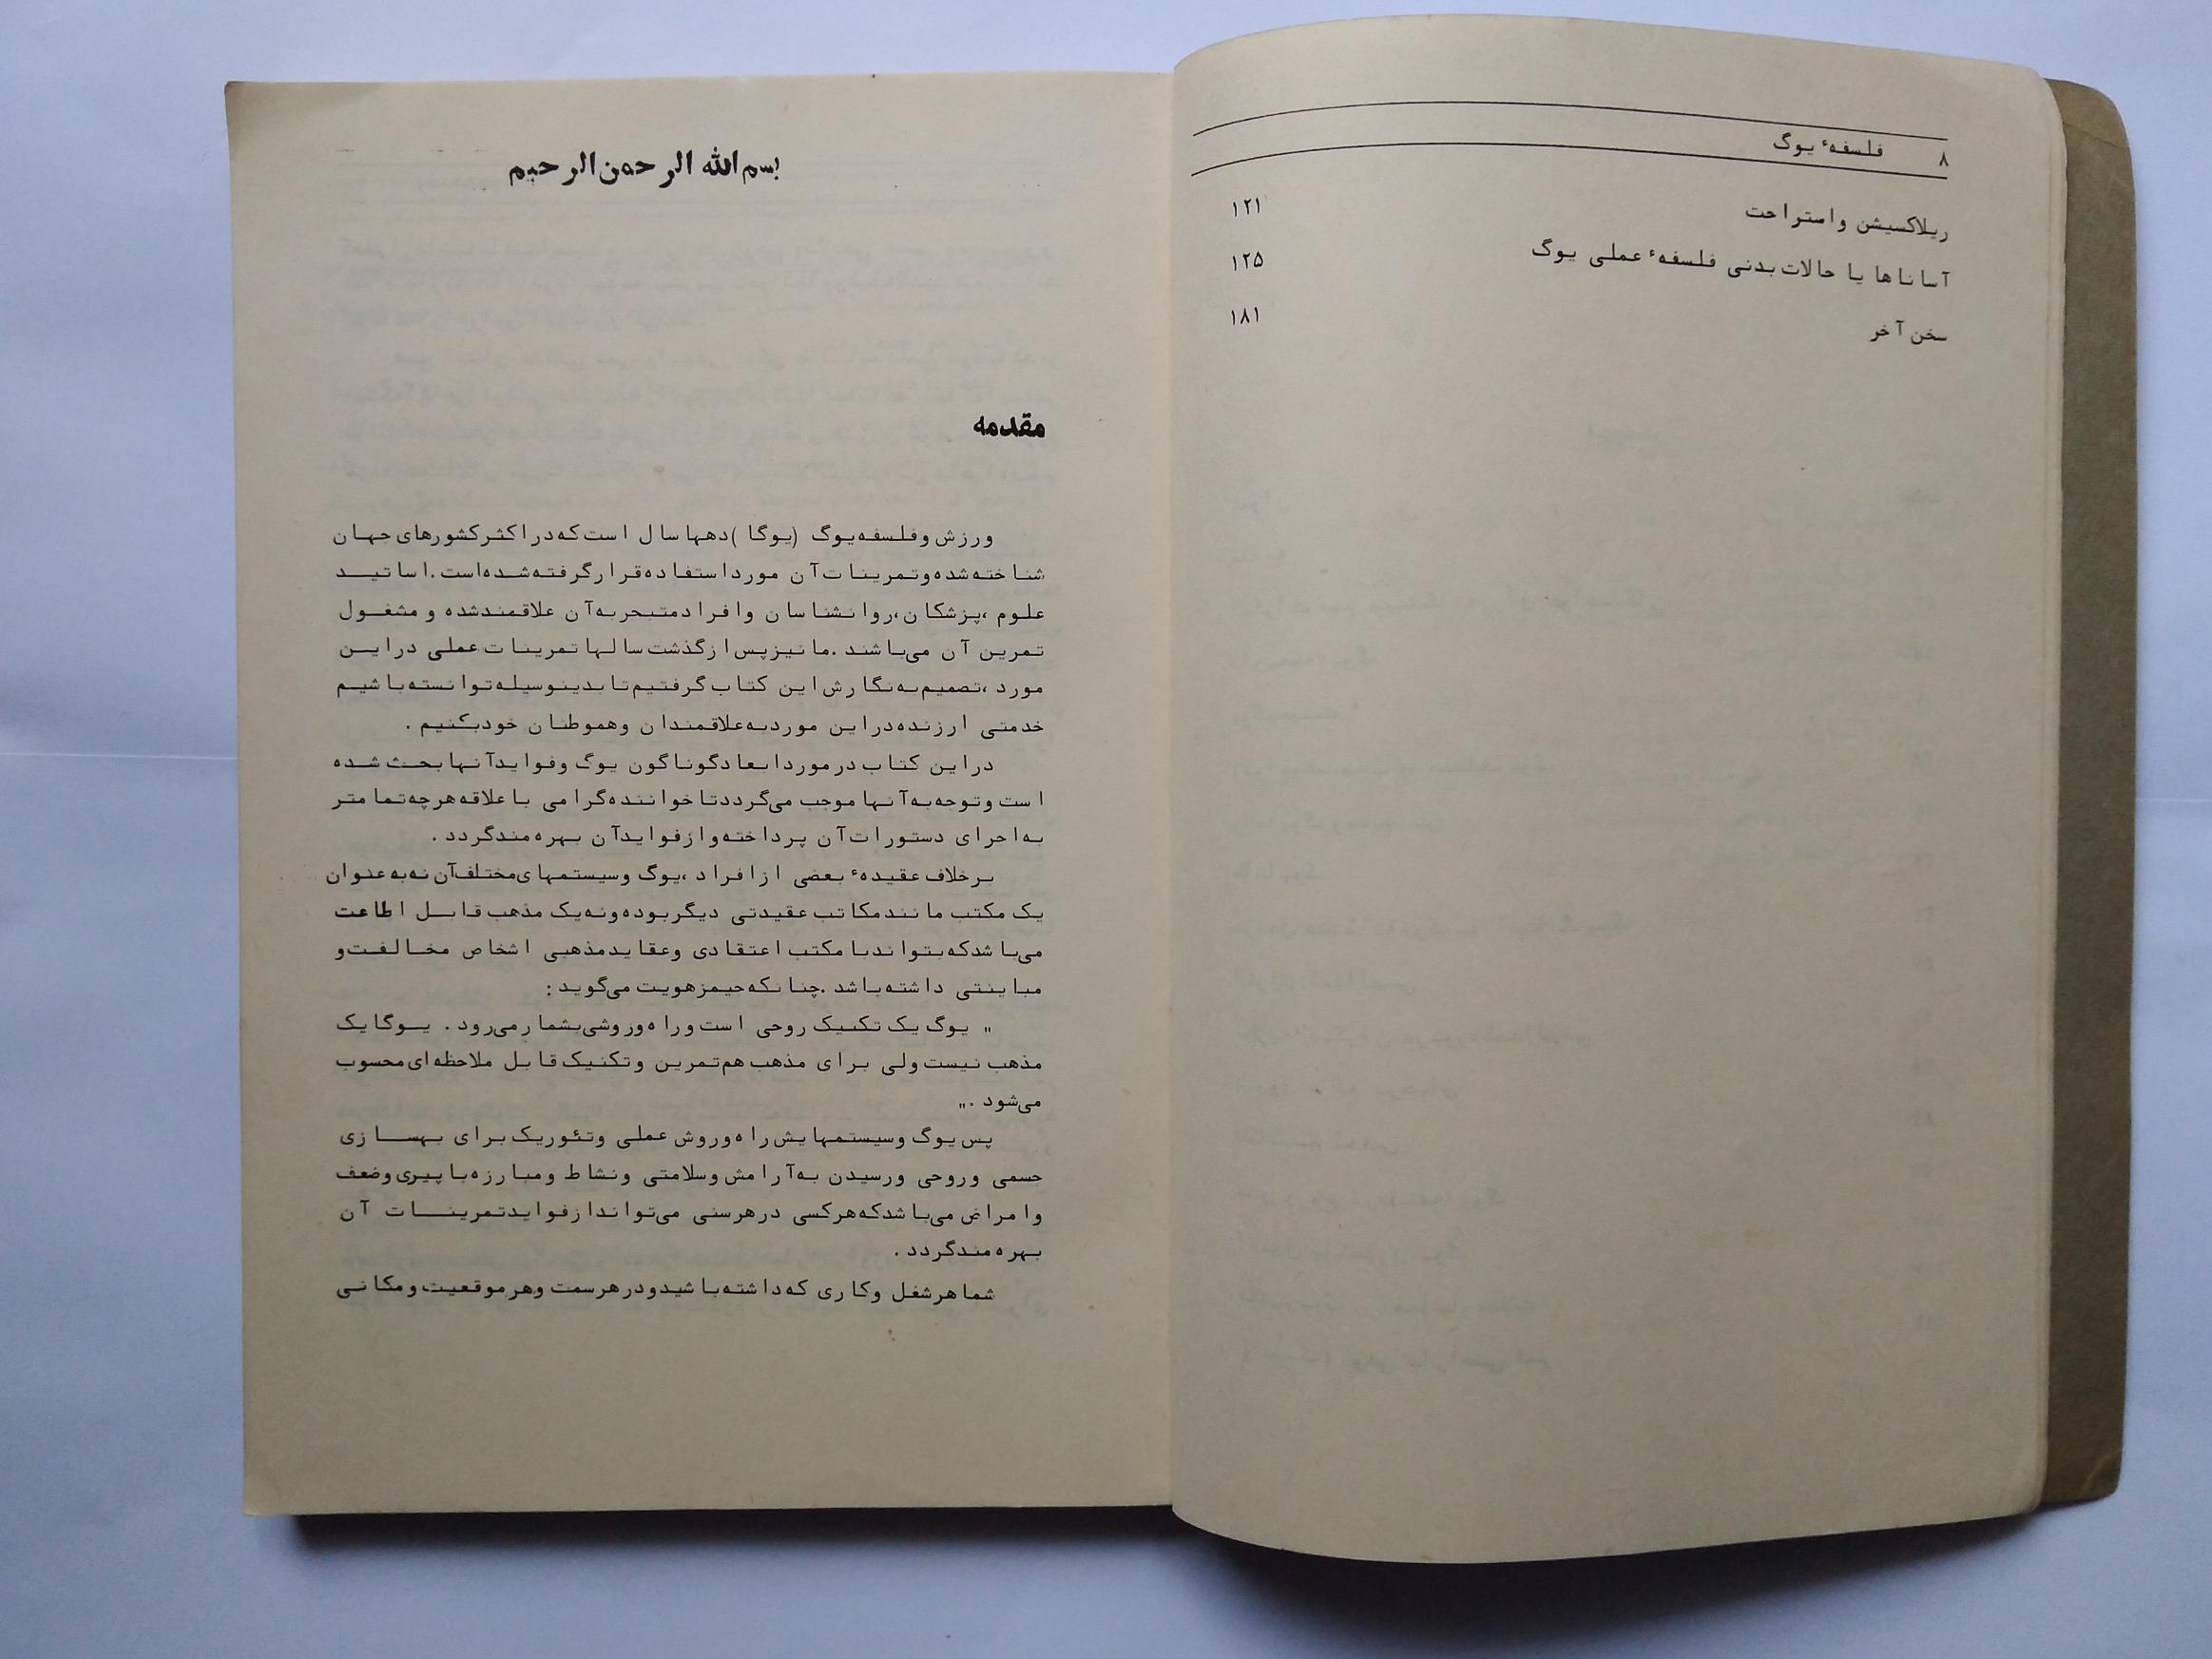 ۸ فلسفهٔ یوگ
ریلاکسیشن و استراحت ۱۲۱
آساناها یا حالات بدنی فلسفهٔ عملی یوگ ۱۲۵
سخن آخر ۱۸۱
بسم الله الرحمن الرحیم
مقدمه
ورزش و فلسفه یوگ (یوگا) دهها سال است که در اکثر کشورهای جهان
شناخته شده و تمرینات آن مورد استفاده قرار گرفته شده است. اساتید
علوم، پزشکان، روانشناسان و افراد متبحر به آن علاقمند شده و مشغول
تمرین آن می‌باشند. ما نیز پس از گذشت سالها تمرینات عملی در این
مورد، تصمیم به نگارش این کتاب گرفتیم تا بدینوسیله توانسته باشیم
خدمتی ارزنده در این مورد به علاقمندان و هموطنان خود بکنیم.
در این کتاب در مورد ابعاد گوناگون یوگ و فواید آنها بحث شده
است و توجه به آنها موجب می‌گردد تا خواننده گرامی با علاقه هرچه تمامتر
به اجرای دستورات آن پرداخته و از فواید آن بهره‌مند گردد.
برخلاف عقیدهٔ بعضی از افراد، یوگ و سیستمهای مختلف آن نه به عنوان
یک مکتب مانند مکاتب عقیدتی دیگر بوده و نه یک مذهب قابل اطاعت
می‌باشد که بتواند با مکتب اعتقادی و عقاید مذهبی اشخاص مخالفت و
مباینتی داشته باشد. چنانکه جیمز هویت می‌گوید:
" یوگ یک تکنیک روحی است و راه و روشی بشمار می‌رود. یوگا یک
مذهب نیست ولی برای مذهب هم تمرین و تکنیک قابل ملاحظه‌ای محسوب
می‌شود. "
پس یوگ و سیستمهایش راه و روش عملی و تئوریک برای بهسازی
جسمی و روحی و رسیدن به آرامش و سلامتی و نشاط و مبارزه با پیری و ضعف
و امراض می‌باشد که هر کسی در هر سنی می‌تواند از فواید تمرینات آن
بهره‌مند گردد.
شما هر شغل و کاری که داشته باشید و در هر سمت و هر موقعیت و مکانی